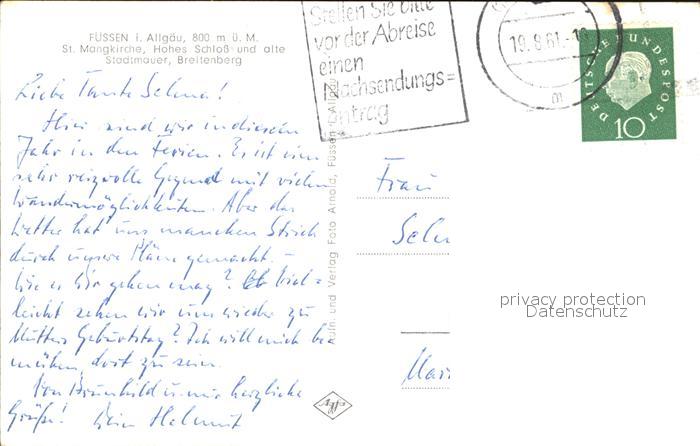 FÜSSEN i. Allgäu, 800 m ü. M.
St. Mangkirche, Hohes Schloß und alte
Stadtmauer, Breitenberg
Stellen Sie bitte
vor der Abreise
einen
Nachsendungs=
antrag
19.8.61.-18
m
DEUTSCHE BUNDESPOST
10
Liebe Tante Selma!
Hier sind wir in diesem
Jahr in den Ferien. Es ist eine
sehr reizvolle Gegend mit vielen
Wandermöglichkeiten. Aber das
Wetter hat uns manchen Strich
durch unsere Pläne gemacht. –
Wie es Dir gehen mag? Viel=
leicht sehen wir uns wieder zu
Mutters Geburtstag? Ich will mich be
mühen, dort zu sein.
Von Brunhild u. mir herzliche
Grüße! Dein Helmut
und Verlag Foto Arnold, Füssen i. Allgäu
Frau
Selm
Mari
privacy protection
Datenschutz
Agfa